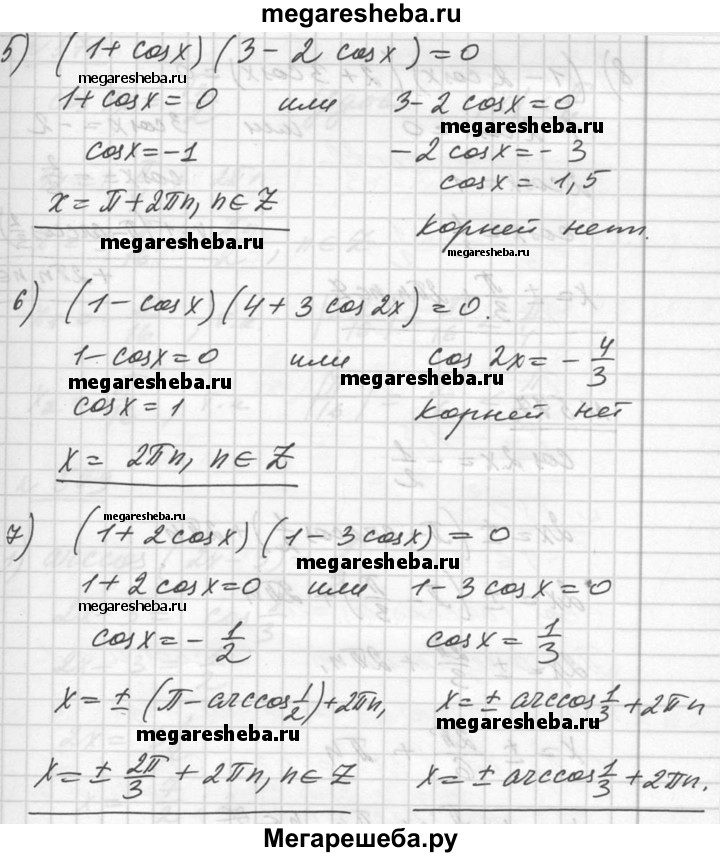 megaresheba.ru
5) (1 + cos x) (3 - 2 cos x) = 0
megaresheba.ru
1 + cos x = 0 или 3 - 2 cos x = 0
megaresheba.ru
cos x = -1 - 2 cos x = - 3
cos x = 1,5
x = π + 2πn, n ∈ Z
Корней нет.
megaresheba.ru
megaresheba.ru
6) (1 - cos x) (4 + 3 cos 2x) = 0.
1 - cos x = 0 или cos 2x = - 4/3
megaresheba.ru megaresheba.ru
cos x = 1 Корней нет
x = 2πn, n ∈ Z
megaresheba.ru
megaresheba.ru
7) (1 + 2 cos x) (1 - 3 cos x) = 0
megaresheba.ru
1 + 2 cos x = 0 или 1 - 3 cos x = 0
megaresheba.ru
cos x = - 1/2 cos x = 1/3
x = ± (π - arccos 1/2) + 2πn, x = ± arccos 1/3 + 2πn
megaresheba.ru megaresheba.ru
x = ± 2π/3 + 2πn, n ∈ Z x = ± arccos 1/3 + 2πn.
Мегарешеба.ру